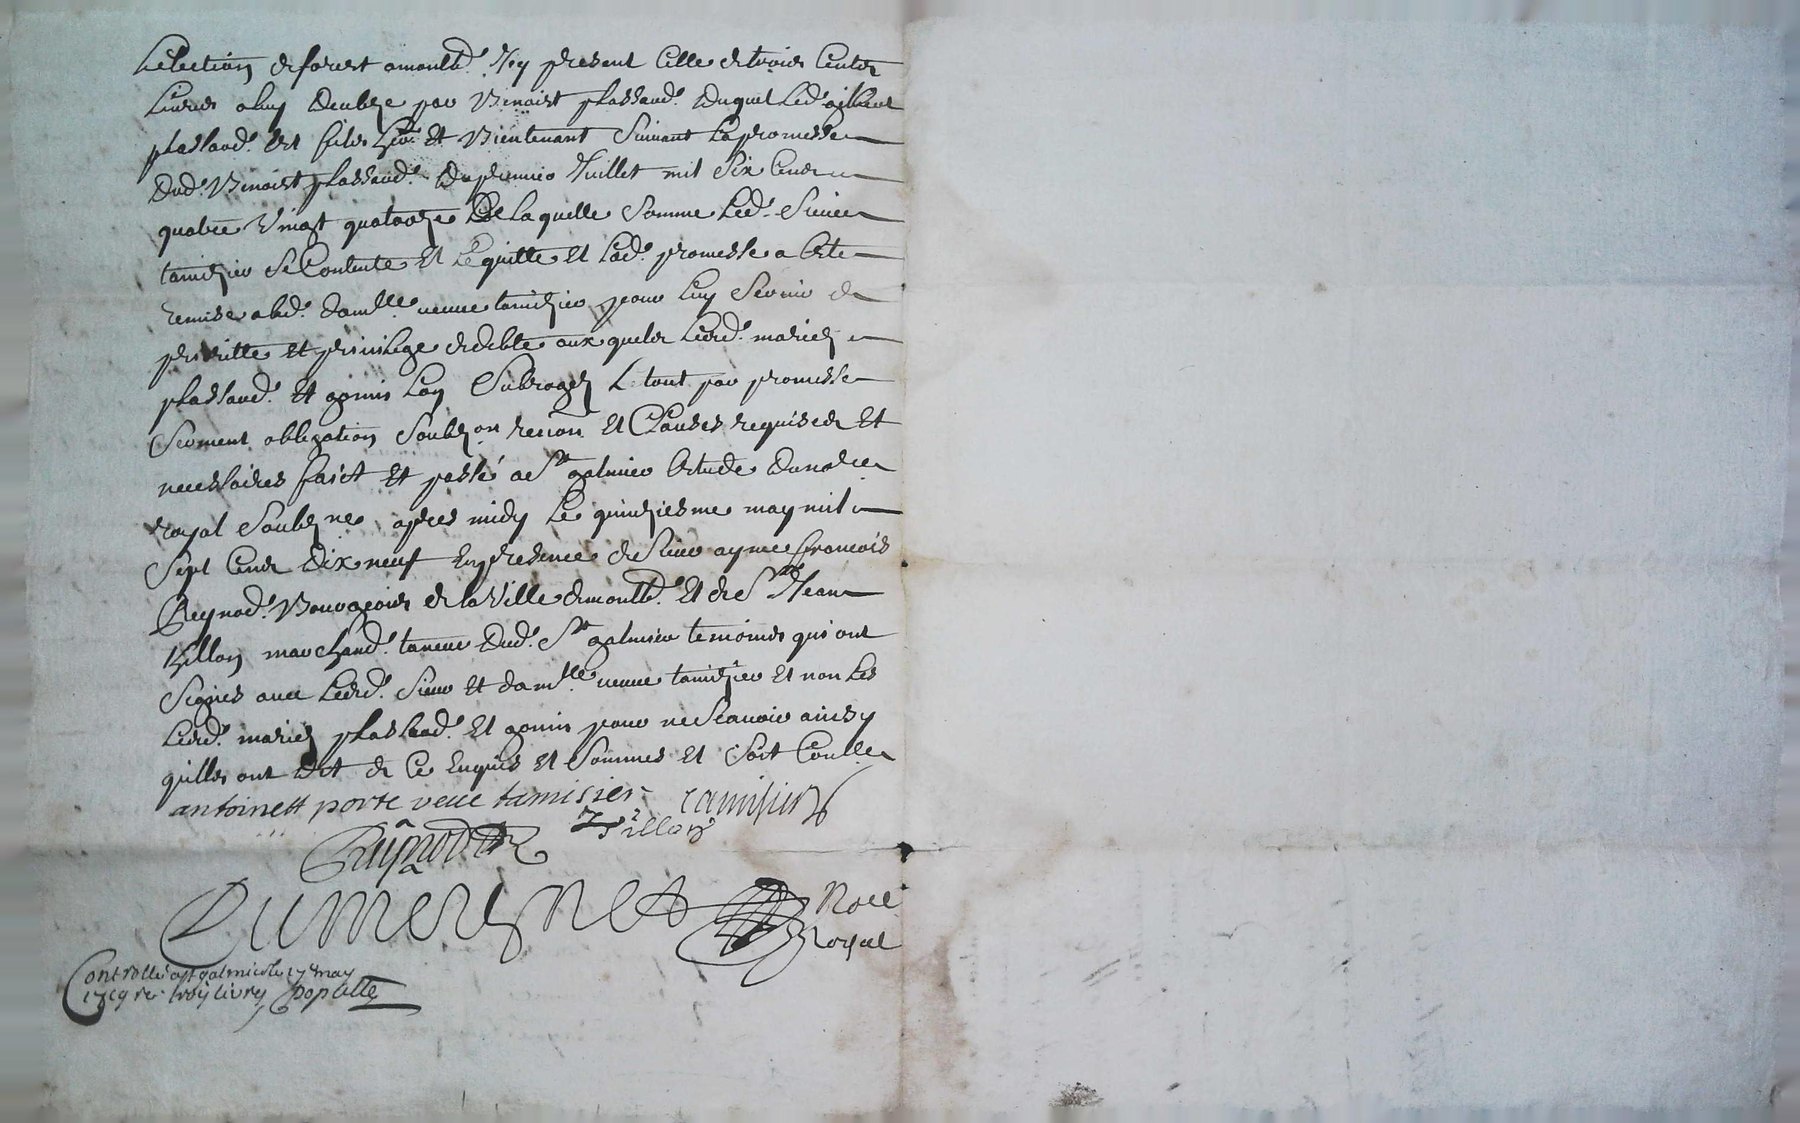 Lélection de forest a montbd. Icy present celle de trois centz
livres a luy deubze par Benoist plassard. Duquel led. gilbert
plassard. est filz her. Et Bientenant Suivant La promesse
Dud. Benoist plassard. Du premier Juillet mil Six Cens
quatre Vingt quatorze De laquelle Somme Led. Sieur
tamizier Se Contente Et Le quitte Et Lad. promesse a Este
remise a lad. damlle. veuve tamizier pour Luy Servir de
prioritte et privilege de debte aux quelz Lesd. mariez
plassard. Et gonin Lon Subrogez Le tout par promesse
Serment obligation Soubzon renon Et Clauses requises Et
necessaires faict Et passé a St galmier Estude Du notre
royal Soubzne. apres midy Le quinziesme may mil
Sept Cens Dix neuf En presence de Sieur ayme francois
Reynod. Bourgeois de la Ville de montbd. Et de Sr Jean
Villon marchand. taneur Dud. St galmier temoins qui ont
Signes avec Lesd. Sieur Et damlle. veuve tamizier Et non Les
Lesd. mariez plassard. Et gonin pour ne Scavoir ainsy
quilz ont dit de Ce Enquis Et Sommes Et Soit Conlle
antoinett porte veue tamisier tamisier
Reynod Villon
Dumeynet Nore
Royal
Controllé a st galmier le 17e may
1719 re. troy livres Populle